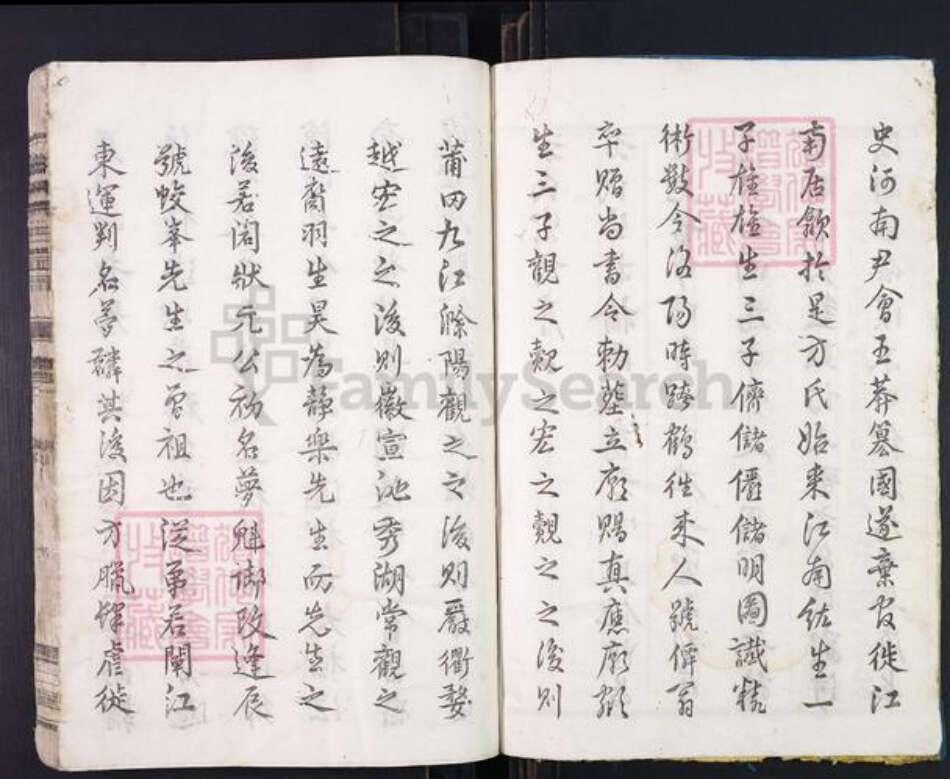 史河南尹會王莽篡國遂棄官徙江
南居歙於是方氏始来江南紘生一
子雄雄生三子儕儲儼儲明圖讖精
術数令洛陽時跨鶴往来人號僊翁
卒贈尚書令勅葬立廟賜真應廟額
生三子觀之覿之宏之覿之之後則
莆田九江滁陽觀之之後則嚴衢婺
越宏之之後則徽宣池秀湖常觀之
遠裔羽生昊為靜樂先生而先生之
後若閣狀元公初名夢魁御改逢辰
號蛟峯先生之曾祖也從弟若闌江
東運判名夢其後因方臘肆虐徙
FamilySearch